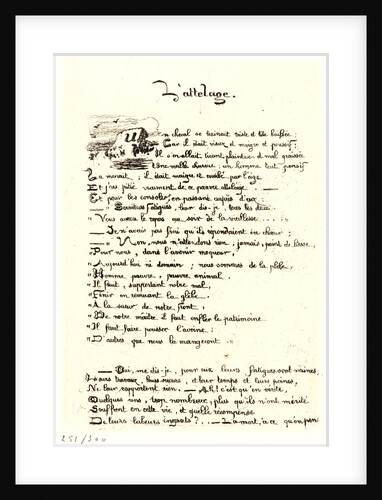 L'attelage.
Un cheval se traînait triste et tête baissée :
Car il était vieux, et maigre et poussif ;
Il s'en allait, tirant, plaintive et mal graissée
Une vieille charrue : un homme tout pensif
La menait ; il était maigre et cassé par l'âge
Et j'ai pitié vraiment de ce pauvre attelage
Et pour les consoler, en passant auprès d'eux :
— Serviteurs fatigués, leur dis-je, tous les deux
" Vous aurez le repos au soir de la vieillesse
— Je n'avais pas fini qu'ils répondaient en chœur :
— " Non, nous n'attendons rien ; jamais, point de liesse,
" Pour nous, dans l'avenir moqueur,
" Aujourd'hui ni demain ; nous sommes de la plèbe,
" Homme pauvre, pauvre animal,
" Il faut, supportant notre mal,
" Finir en remuant la glèbe.
" A la sueur de notre front,
" De notre maître il faut enfler le patrimoine
" Il faut faire pousser l'avoine :
" D'autres que nous la mangeront "
— Oui, me dis-je, pour eux leurs fatigues sont vaines,
Leurs travaux, leurs sueurs, et leur temps et leurs peines,
Ne leur rapportent rien. — Ah ! c'est qu'en vérité,
Quelques uns, trop nombreux, plus qu'ils n'ont mérité
Souffrent en cette vie, et quelle récompense
De leurs labeurs ingrats ? .. — La mort, à ce qu'on pense
251/300